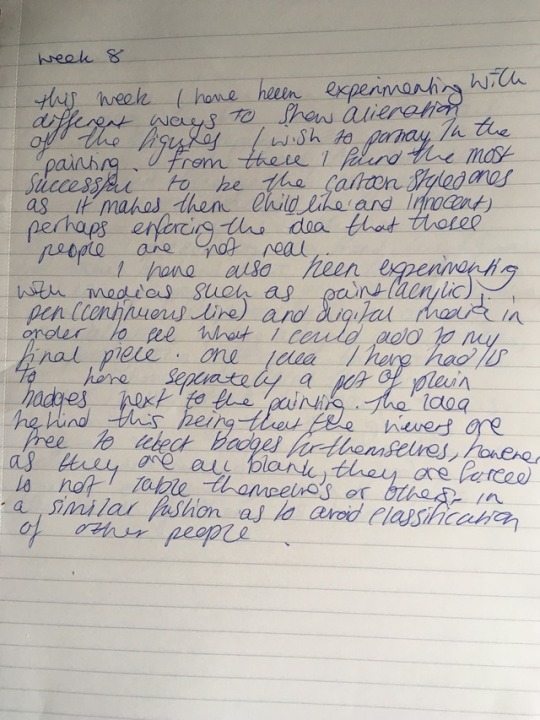 week 8
this week I have been experimenting with
different ways to show alienation
of the figures I wish to portray in the
painting. From these I found the most
successful to be the cartoon styled ones
as it makes them childlike and innocent,
perhaps enforcing the idea that these
people are not real.
I have also been experimenting
with medias such as paint (acrylic),
pen (continuous line) and digital media in
order to see what I could add to my
final piece. One idea I have had is
to have seperately a pot of plain
badges next to the painting. The idea
behind this being that the viewers are
free to select badges for themselves, however
as they are all blank, they are forced
to not lable themselves or others in
a similar fashion as to avoid classification
of other people.